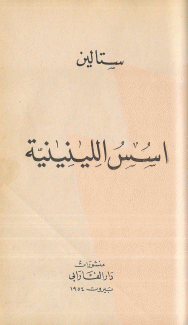 ستالين
اسسُ اللينينيّة
منشورات
دار الفارابي
بيروت ١٩٥٤